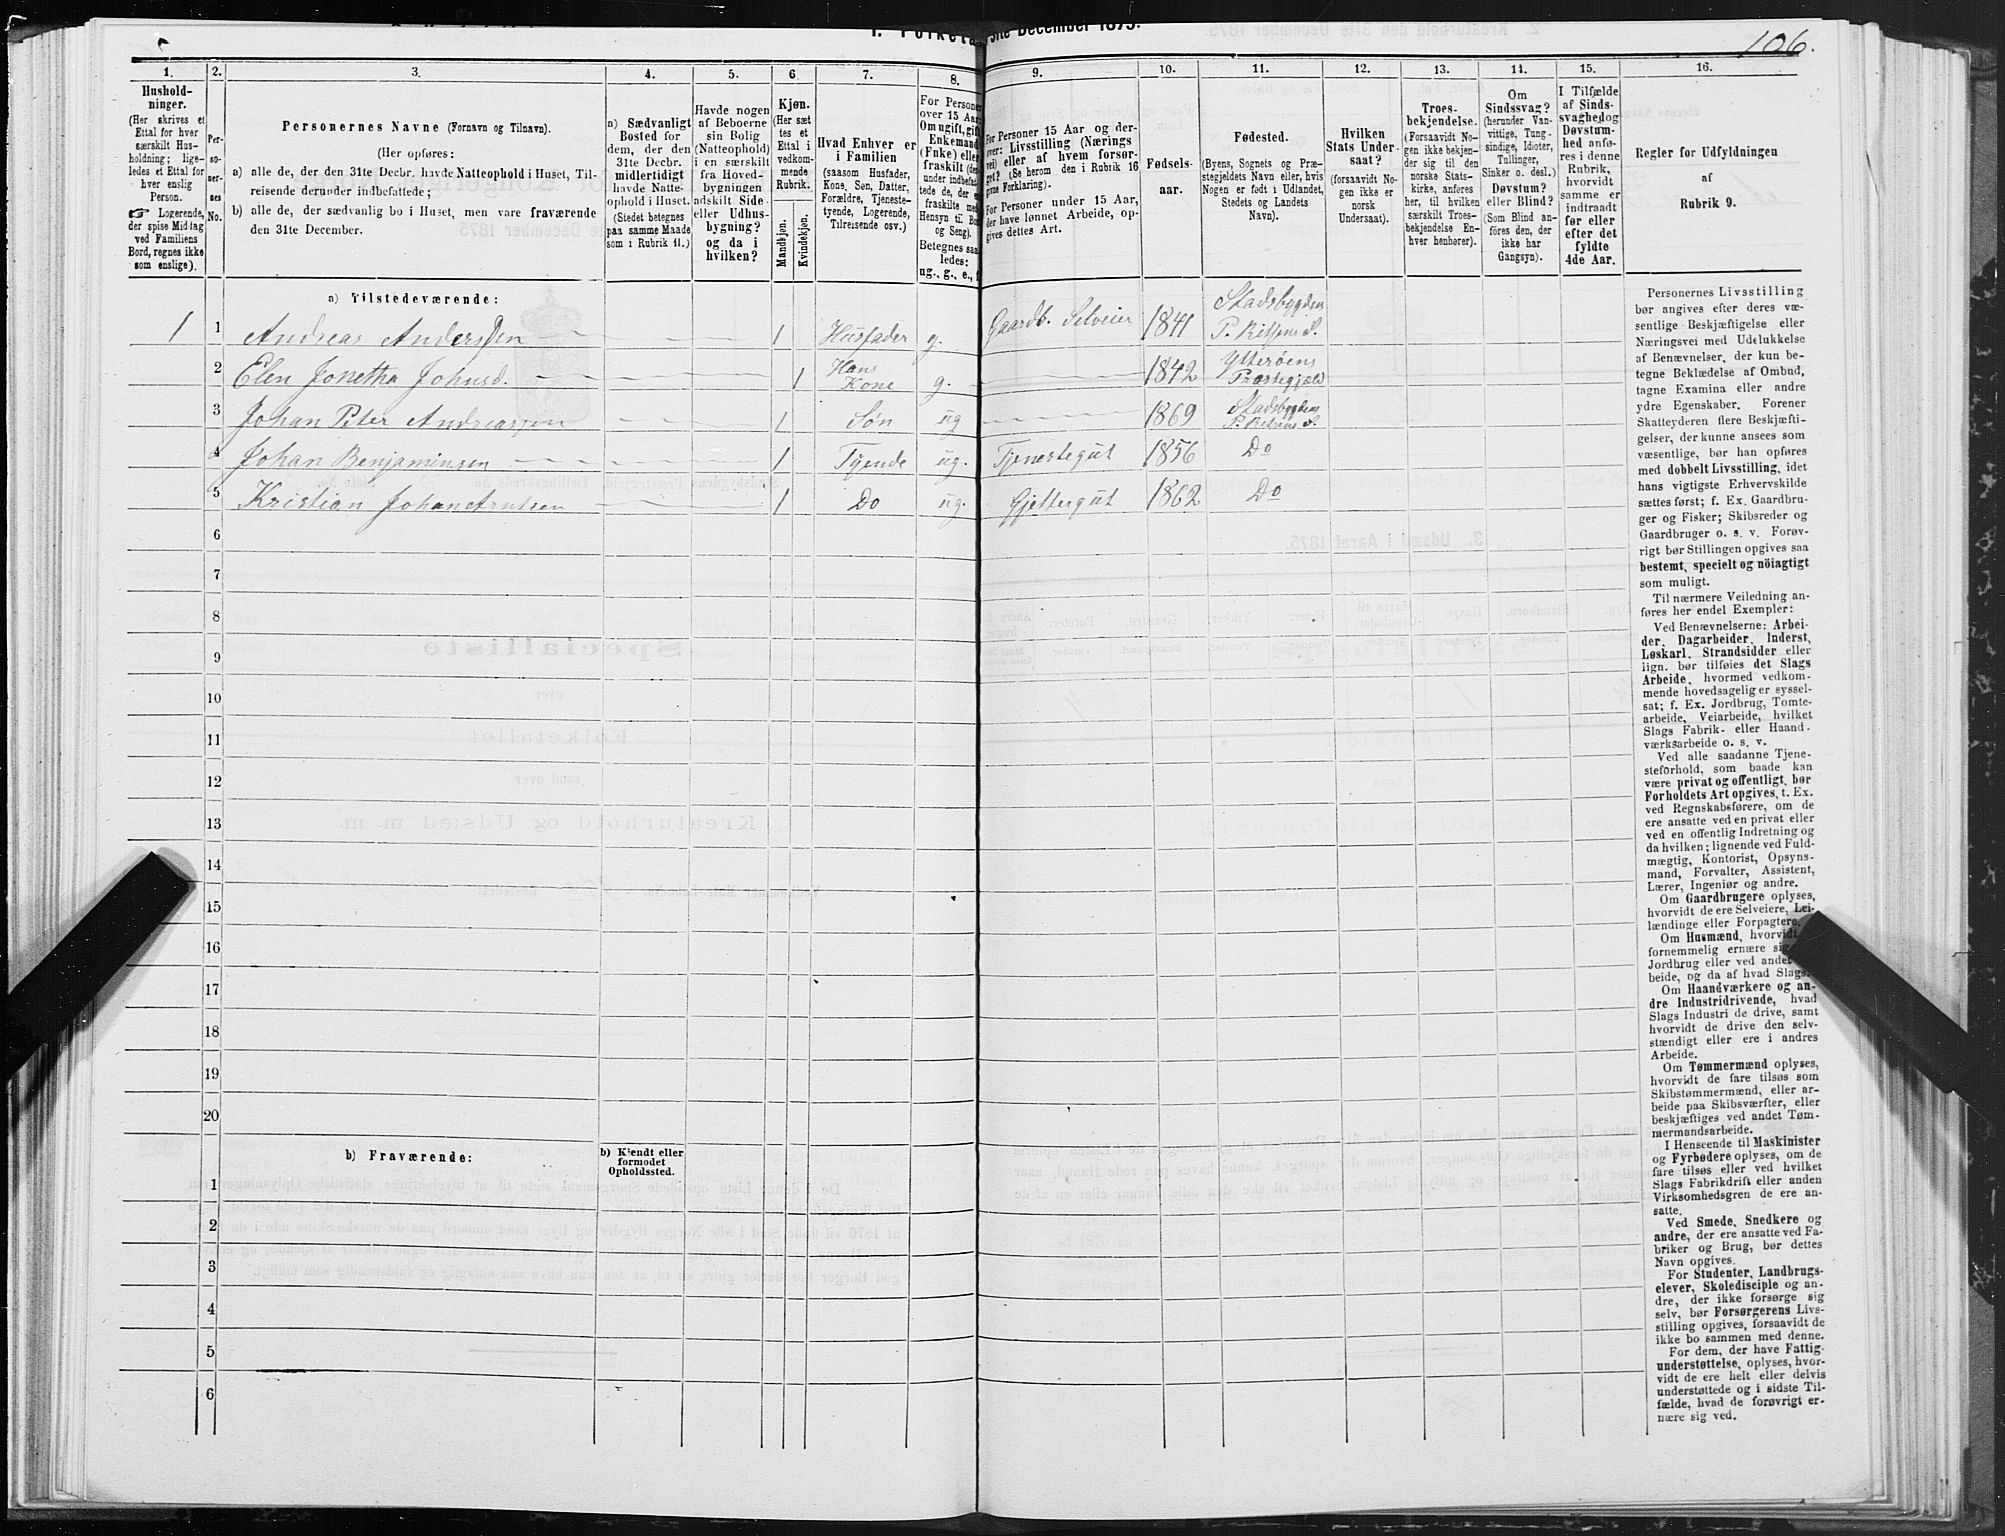 106.
1. 2. 3. 4. 5. 6 7. 8. 9. 10. 11. 12. 13. 14. 15. 16.
Hushold-
ninger.
(Her skrives et
Ettal for hver
særskilt Hus-
holdning; lige-
ledes et Ettal for
hver enslig
Person.
Logerende,
der spise Middag
ved Familiens
Bord, regnes ikke
som enslige).
Per-
so-
ner-
nes
No.
Personernes Navne (Fornavn og Tilnavn).
(Her opføres:
a) alle de, der den 31te Decbr. havde Natteophold i Huset, Til-
reisende derunder indbefattede;
b) alle de, der sædvanlig bo i Huset, men vare fraværende
den 31te December.
a) Sædvanligt
Bosted for
dem, der den
31te Decbr.
midlertidigt
havde Natte-
ophold i Huset.
(Stedet betegnes
paa samme Maade
som i Rubrik 11.)
Havde nogen
af Beboerne
sin Bolig
(Natteophold)
i en særskilt
fra Hoved-
bygningen
adskilt Side-
eller Udhus-
bygning?
og da i
hvilken?
Kjøn.
(Her sæt
tes et
Ettal i
vedkom-
mende
Rubrik.
Mandkjøn.
Kvindekjøn.
Hvad Enhver er
i Familien
(saasom Husfader,
Kone, Søn, Datter,
Forældre, Tjeneste-
tyende, Logerende,
Tilreisende osv.)
For Personer
over 15 Aar:
Om ugift, gift,
Enkemand
(Enke) eller
fraskilt
Betegnes saa
ledes:
ug., g., e., f
For Personer 15 Aar og der-
over: Livsstilling (Nærings
vei) eller af hvem forsør-
get? (Se herom den i Rubrik 16
givne Forklaring).
For Personer under 15 Aar,
der have lønnet Arbeide, op-
gives dettes Art.
Fødsels-
aar.
Fødested.
(Byens, Sognets og Præ-
stegjeldets Navn eller, hvis
Nogen er født i Udlandet,
Stedets og Landets
Navn).
Hvilken
Stats Under-
saat?
(forsaavidt No-
gen ikke er
norsk
Undersaat).
Troes-
bekjendelse.
(Forsaavidt No-
gen ikke bekjen-
der sig til den
norske Stats-
kirke, anføres
her, til hvilken
særskilt Troes-
bekjendelse En-
hver henhører).
Om
Sindssvag?
(herunder Van-
vittige, Tung-
sindige, Idioter,
Tullinger,
Sinker o. desl.)
Døvstum?
eller Blind?
(Som Blind an-
føres den, der
ikke har
Gangsyn).
I Tilfælde
af Sinds-
svaghed og
Døvstum-
hed anfø-
res i denne
Rubrik,
hvorvidt
samme er
indtraadt
før eller
efter det
fyldte
4de Aar.
Regler for Udfyldningen
af
Rubrik 9.
a) Tilstedeværende:
1 1 Andreas Andersen 1 Husfader g. Gaardb. Selveier 1841 Stadsbygden P. Rissens S.
2 Elen Jonetha Johnsd. 1 Hans Kone g. 1842 Ytterøens Præstegjæld
3 Johan Peter Andreassen 1 Søn ug 1869 Stadsbygdens P. Rissens S.
4 Johan Benjaminsen 1 Tyende ug. Tjenestegut 1856 Do
5 Kristian Johan Arntsen 1 Do ug. Gjettergut 1862 Do
6
7
8
9
10
11
12
13
14
15
16
17
18
19
20
b) Fraværende:
b) Kjendt eller
formodet
Opholdssted.
1
2
3
4
5
6
Personernes Livsstilling
bør angives efter deres væ-
sentlige Beskjæftigelse eller
Næringsvei med Udelukkelse
af Benævnelser, der kun be-
tegne Beklædelse af Ombud,
tagne Examina eller andre
ydre Egenskaber. Forener
Skatteyderen flere Beskjæfti-
gelser, der kunne ansees som
væsentlige, bør han opføres
med dobbelt Livsstilling, idet
hans vigtigste Erhvervskilde
sættes først; f. Ex. Gaardbru-
ger og Fisker; Skibsreder og
Gaardbruger o. s. v. Forøv-
rigt bør Stillingen opgives saa
bestemt, specielt og nöiagtigt
som muligt.
Til nærmere Veiledning an-
føres her endel Exempler:
Ved Benævnelserne: Arbei-
der, Dagarbeider, Inderst,
Løskarl, Strandsidder eller
lign. bør tilføies det Slags
Arbeide, hvormed vedkom-
mende hovedsagelig er syssel-
sat; f. Ex. Jordbrug, Tomte-
arbeide, Veiarbeide, hvilket
Slags Fabrik- eller Haand-
værksarbeide o. s. v.
Ved alle saadanne Tjene-
steforhold, som baade kan
være privat og offentligt, bør
Forholdets Art opgives, t. Ex.
ved Regnskabsførere, om de
ere ansatte ved en privat eller
ved en offentlig Indretning og
da hvilken; lignende ved Fuld-
mægtig, Kontorist, Opsyns-
mand, Forvalter, Assistent,
Lærer, Ingeniør og andre.
Om Gaardbrugere oplyses,
hvorvidt de ere Selveiere, Lei-
lændinge eller Forpagtere.
Om Husmænd, hvorvidt
fornemmelig ernære sig
Jordbrug eller ved andet
beide, og da af hvad Slags.
Om Haandværkere og an-
dre Industridrivende, hvad
Slags Industri de drive, samt
hvorvidt de drive den selv-
stændigt eller ere i andres
Arbeide.
Om Tømmermænd oplyses,
hvorvidt de fare tilsøs som
Skibstømmermænd, eller ar-
beide paa Skibsværfter, eller
beskjæftiges ved andet Tøm-
mermandsarbeide.
I Henseende til Maskinister
og Fyrbødere oplyses, om de
fare tilsøs eller ved hvilket
Slags Fabrikdrift eller anden
Virksomhedsgren de ere an-
satte.
Ved Smede, Snedkere og
andre, der ere ansatte ved Fa-
briker og Brug, bør dettes
Navn opgives.
For Studenter, Landbrugs-
elever, Skoledisciple og an-
dre, der ikke forsørge sig
selv, bør Forsørgerens Livs-
stilling opgives, forsaavidt de
ikke bo sammen med denne.
For dem, der have Fattig-
understøttelse, oplyses, hvor-
vidt de ere helt eller delvis
understøttede og i sidste Til-
fælde, hvad de forøvrigt er-
nære sig ved.